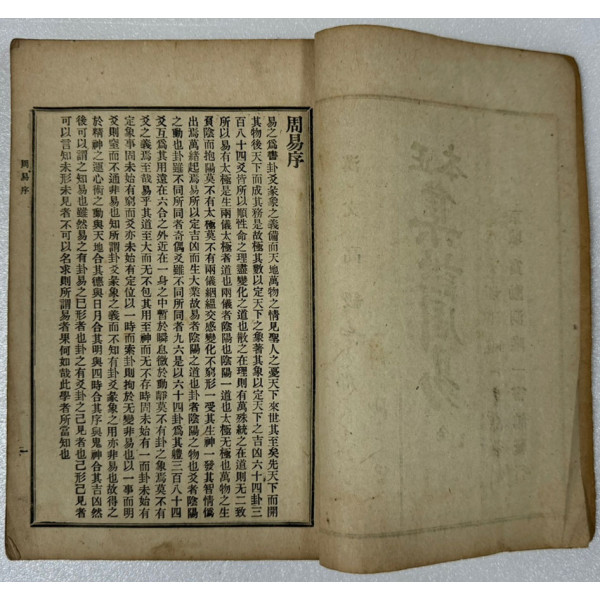 周易序
易之爲書卦爻彖象之義備而天地萬物之情見聖人之憂天下來世其至矣先天下而開
其物後天下而成其務是故極其數以定天下之象著其象以定天下之吉凶六十四卦三
百八十四爻皆所以順性命之理盡變化之道也散之在理則有萬殊統之在道則无二致
所以易有太極是生兩儀太極者道也兩儀者陰陽也陰陽一道也太極无極也萬物之生
負陰而抱陽莫不有太極莫不有兩儀絪縕交感變化不窮形一受其生神一發其智情僞
出焉萬緖起焉易所以定吉凶而生大業故易者陰陽之道也卦者陰陽之物也爻者陰陽
之動也卦雖不同所同者奇偶爻雖不同所同者九六是以六十四卦爲其體三百八十四
爻互爲其用遠在六合之外近在一身之中暫於瞬息微於動靜莫不有卦之象焉莫不有
爻之義焉至哉易乎其道至大而无不包其用至神而无不存時固未始有一而卦未始有
定象事固未始有窮而爻亦未始有定位以一時而索卦則拘於无變非易也以一事而明
爻則窒而不通非易也知所謂卦爻彖象之義而不知有卦爻彖象之用亦非易也故得之
於精神之運心術之動與天地合其德與日月合其明與四時合其序與鬼神合其吉凶然
後可以謂之知易也雖然易之有卦易之已形者也卦之有爻卦之已見者也已形已見者
可以言知未形未見者不可以名求則所謂易者果何如哉此學者所當知也
周易序
一